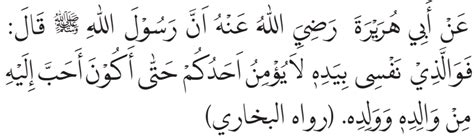 عَنْ أَبِي هُرَيْرَةَ رَضِيَ اللهُ عَنْهُ أَنَّ رَسُوْلَ اللهِ ﷺ قَالَ:
فَوَالَّذِيْ نَفْسِيْ بِيَدِهٖ لَايُؤْمِنُ اَحَدُكُمْ حَتّٰى أَكُوْنَ أَحَبَّ إِلَيْهِ
مِنْ وَالِدِهٖ وَوَلَدِهٖ. (رواه البخاري)